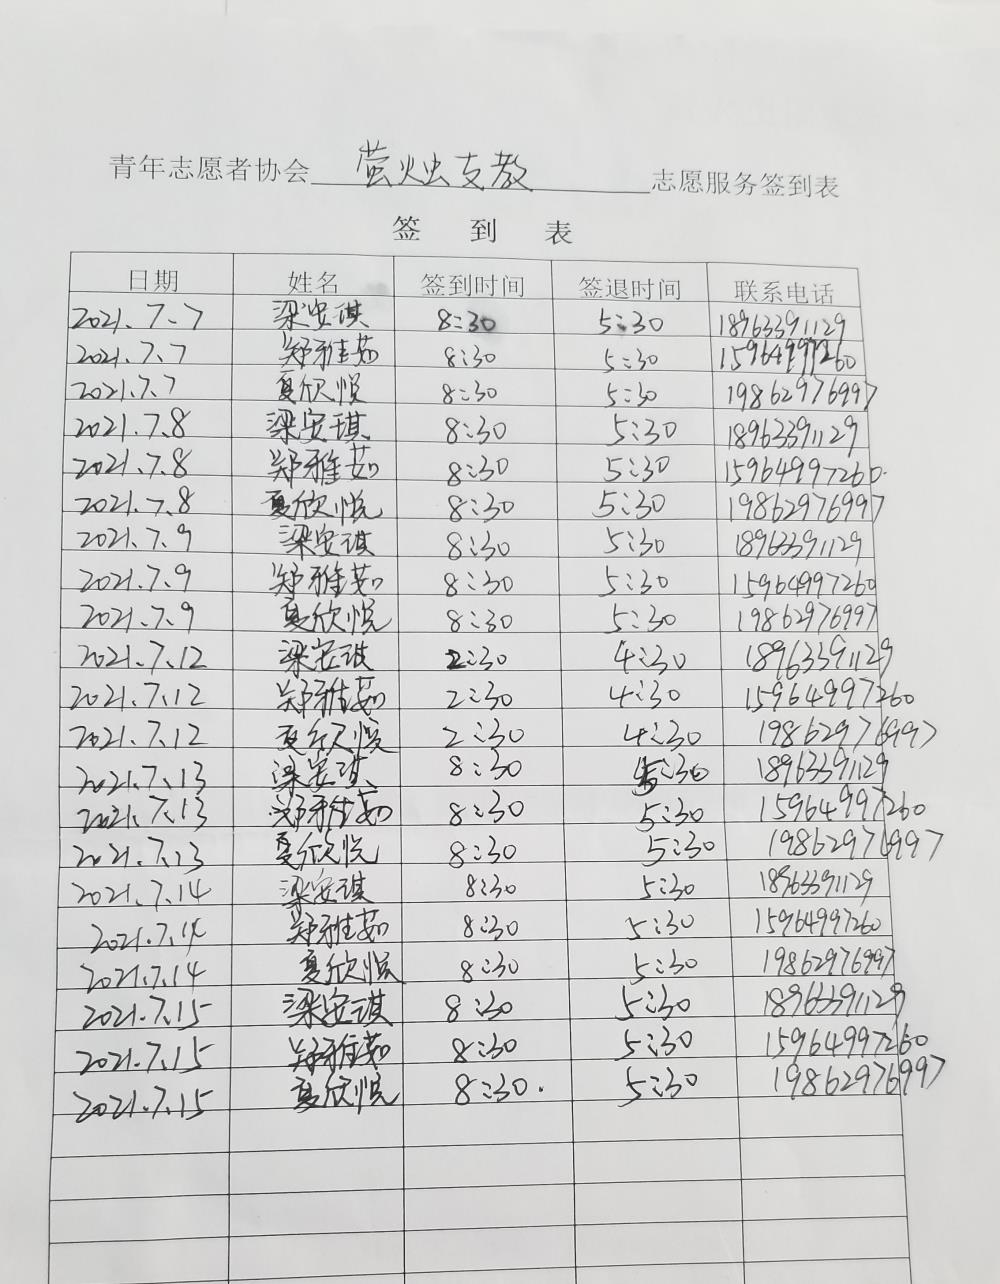 青年志愿者协会 萤烛支教 志愿服务签到表
签 到 表
日期 姓名 签到时间 签退时间 联系电话
2021.7.7 梁安琪 8:30 5:30 18963391129
2021.7.7 郑雅茹 8:30 5:30 15964997260
2021.7.7 夏欣悦 8:30 5:30 19862976997
2021.7.8 梁安琪 8:30 5:30 18963391129
2021.7.8 郑雅茹 8:30 5:30 15964997260
2021.7.8 夏欣悦 8:30 5:30 19862976997
2021.7.9 梁安琪 8:30 5:30 18963391129
2021.7.9 郑雅茹 8:30 5:30 15964997260
2021.7.9 夏欣悦 8:30 5:30 19862976997
2021.7.12 梁安琪 2:30 4:30 18963391129
2021.7.12 郑雅茹 2:30 4:30 15964997260
2021.7.12 夏欣悦 2:30 4:30 19862976997
2021.7.13 梁安琪 8:30 5:30 18963391129
2021.7.13 郑雅茹 8:30 5:30 15964997260
2021.7.13 夏欣悦 8:30 5:30 19862976997
2021.7.14 梁安琪 8:30 5:30 18963391129
2021.7.14 郑雅茹 8:30 5:30 15964997260
2021.7.14 夏欣悦 8:30 5:30 19862976997
2021.7.15 梁安琪 8:30 5:30 18963391129
2021.7.15 郑雅茹 8:30 5:30 15964997260
2021.7.15 夏欣悦 8:30. 5:30 19862976997